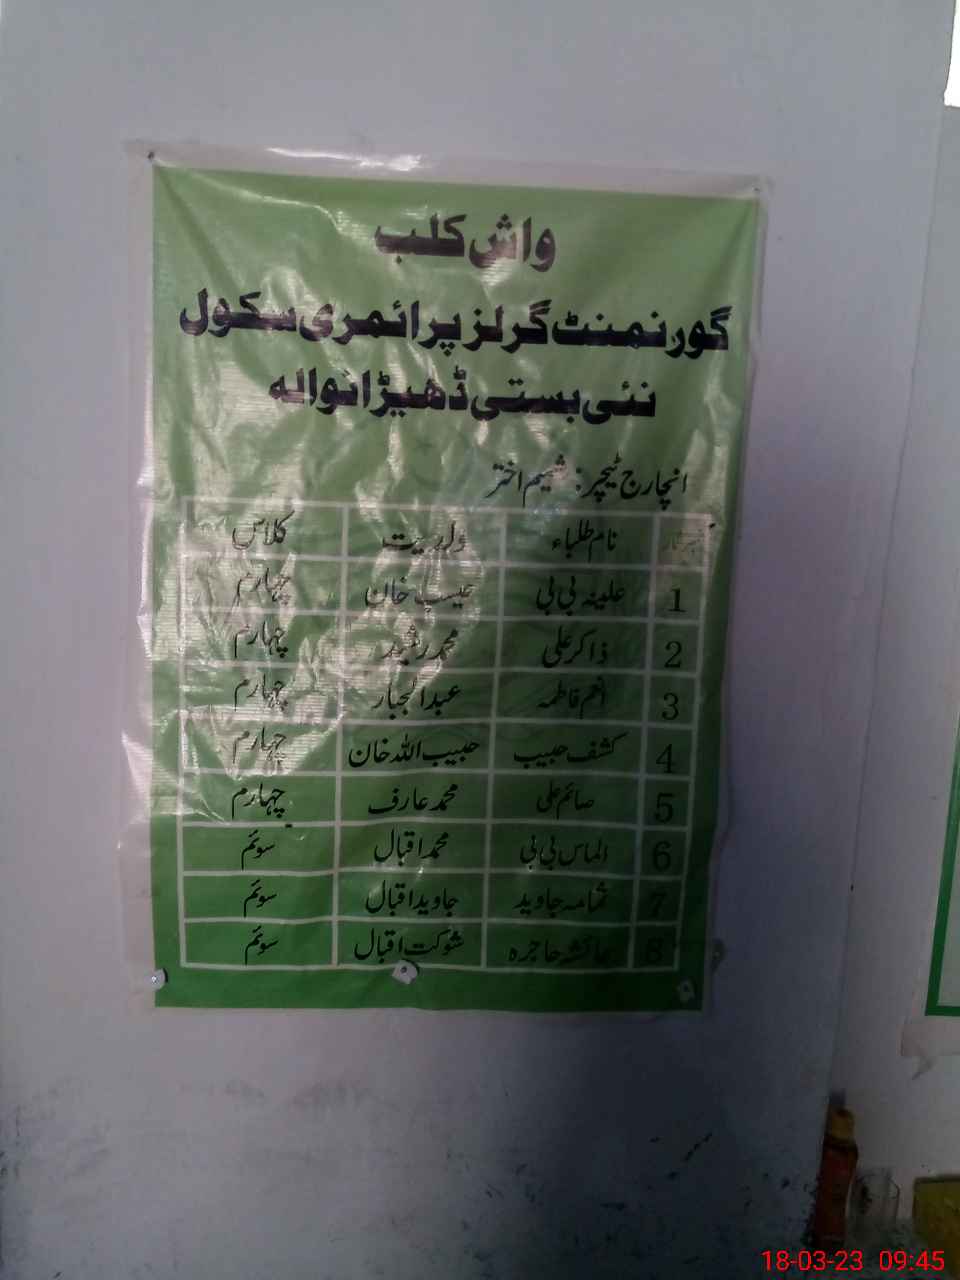 واش کلب
گورنمنٹ گرلز پرائمری سکول
نئی بستی ڈھیڑانوالہ
انچارج ٹیچر: شمیم اختر
نمبر شمار نام طلباء ولدیت کلاس
1 علینہ بی بی عیسیٰ خان چہارم
2 ذاکر علی محمد رشید چہارم
3 انعم فاطمہ عبدالجبار چہارم
4 کشف حبیب حبیب اللہ خان چہارم
5 صائم علی محمد عارف چہارم
6 الماس بی بی محمد اقبال سوئم
7 ثمامہ جاوید جاوید اقبال سوئم
8 عائشہ حاجرہ شوکت اقبال سوئم
18-03-23 09:45